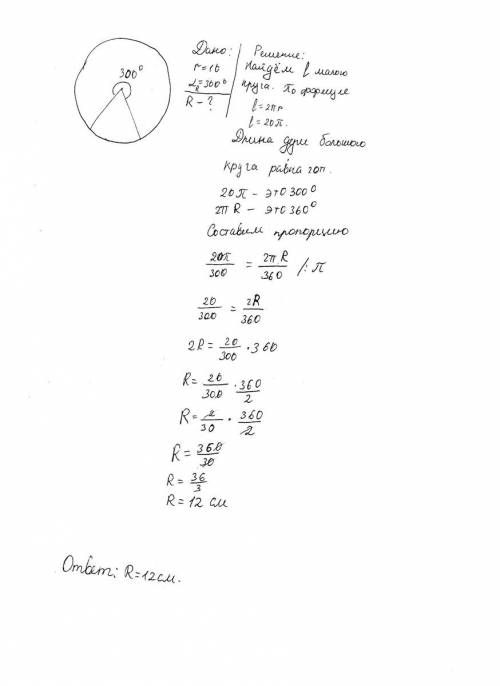 300°
Дано:
r=10
α=300°
R - ?
Решение:
Найдём l малого
круга. По формуле
l=2πr
l=20π.
Длина дуги большого
круга равна 20π.
20π - это 300°
2πR - это 360°
Составим пропорцию
20π/300 = 2πR/360 /:π
20/300 = 2R/360
2R = 20/300 · 360
R = 20/300 · 360/2
R = 2/30 · 360/2
R = 360/30
R = 36/3
R = 12 см
Ответ: R=12см.